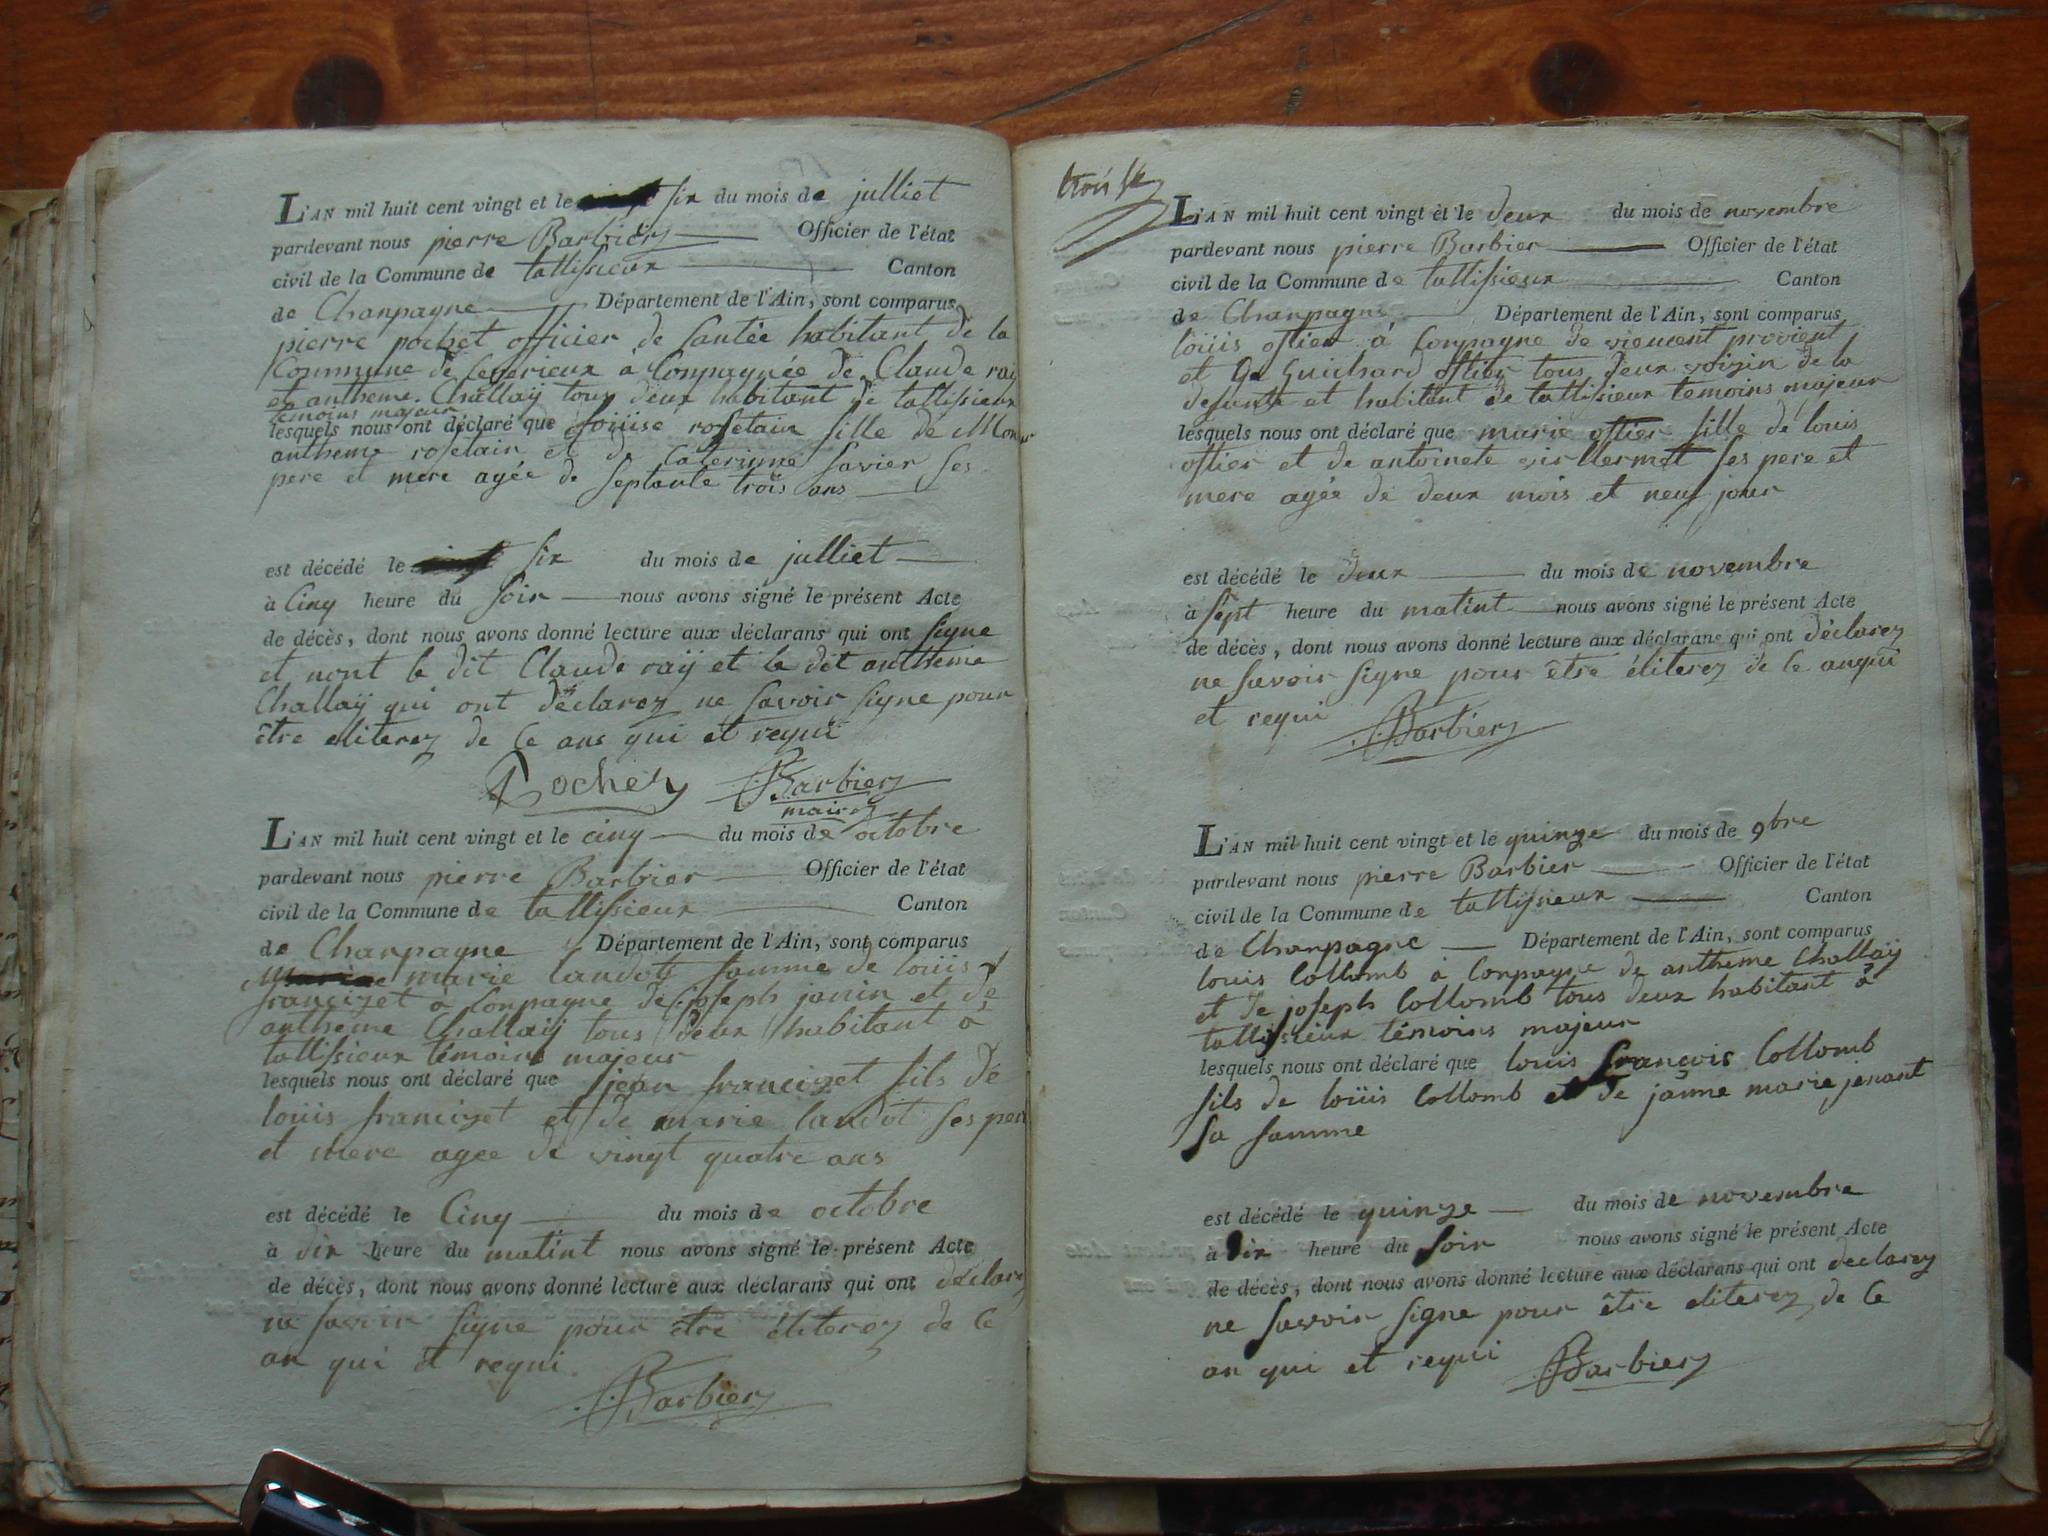 L'AN mil huit cent vingt et le six du mois de julliet
pardevant nous pierre Barbier Officier de l'état
civil de la Commune de tallissieux Canton
de Chanpagne Département de l'Ain, sont comparus
pierre pochet officier de santée habitant de la
Commune de Cegerieux à Conpagnée de Claude raÿ
et antheme Challaÿ tous deux habitant de tallissieux
temoins majeur
lesquels nous ont déclaré que louiise rosetain fille de
antheme rosetain et de Caterinne savier ses
pere et mere agée de septante trois ans
est décédé le six du mois de julliet
à Cinq heure du soir nous avons signé le présent Acte
de décès, dont nous avons donné lecture aux déclarans qui ont signe
et nont le dit Claude raÿ et le dit antheme
Challaÿ qui ont déclarez ne savoir signe pour
être eliterez de Ce ans qui et requi
Pochet Barbier
maire
L'AN mil huit cent vingt et le cinq du mois de octobre
pardevant nous pierre Barbier Officier de l'état
civil de la Commune de tallissieux Canton
de Chanpagne Département de l'Ain, sont comparus
marie landot famme de loüis
francizet à Conpagne de joseph janin et de
antheme Challaÿ tous deux habitant à
tallissieux témoins majeur
lesquels nous ont déclaré que jean francizet fils de
loüis francizet et de marie landot ses pere
et mere agee de vingt quatre ans
est décédé le Cinq du mois de octobre
à dix heure du matint nous avons signé le présent Acte
de décès, dont nous avons donné lecture aux déclarans qui ont déclarez
ne savoir signe pour être éliterez de Ce
an qui et requi
Barbier
L'AN mil huit cent vingt et le deux du mois de novembre
pardevant nous pierre Barbier Officier de l'état
civil de la Commune de tallissieux Canton
de Chanpagne Département de l'Ain, sont comparus
loüis ostier à Conpagne de provient
et Guichard ostier tous deux voizin de la
defunte et habitant de tallissieux temoins majeur
lesquels nous ont déclaré que marie ostier fille de louis
ostier et de antoinete ses pere et
mere agée de deux mois et neuf jour
est décédé le deux du mois de novembre
à sept heure du matint nous avons signé le présent Acte
de décès, dont nous avons donné lecture aux déclarans qui ont déclarez
ne savoir signe pour être éliterez de Ce anqui
et requi Barbier
L'AN mil huit cent vingt et le quinze du mois de 9bre
pardevant nous pierre Barbier Officier de l'état
civil de la Commune de tallissieux Canton
de Chanpagne Département de l'Ain, sont comparus
louis Collomb à Conpagne de antheme Challaÿ
et de joseph Collomb tous deux habitant à
tallissieux témoins majeur
lesquels nous ont déclaré que louis françois Collomb
fils de loüis Collomb et de janne marie jenant
sa famme
est décédé le quinze du mois de novembre
à dix heure du soir nous avons signé le présent Acte
de décès, dont nous avons donné lecture aux déclarans qui ont declarez
ne savoir signe pour être eliterez de Ce
an qui et requi Barbier